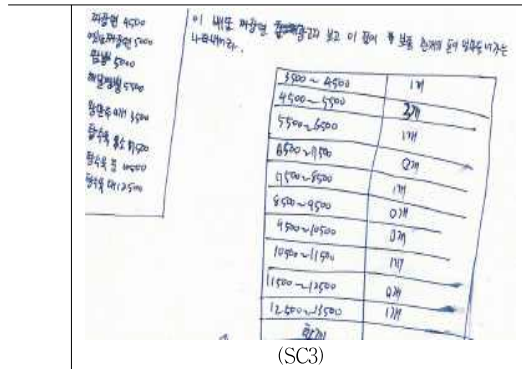 짜장면 4500
옛날짜장면 5000
짬뽕 5000
해물짬뽕 5500
군만두 10개 3500
탕수육 소 7500
탕수육 중 10500
탕수육 대 12500
이 메뉴 짜장면 보고 이 집이 보통 돈이
나타내어라.
3500 ~ 4500 1개
4500 ~ 5500 3개
5500 ~ 6500 1개
6500 ~ 7500 0개
7500 ~ 8500 1개
8500 ~ 9500 0개
9500 ~ 10500 0개
10500 ~ 11500 1개
11500 ~ 12500 0개
12500 ~ 13500 1개
합계
(SC3)